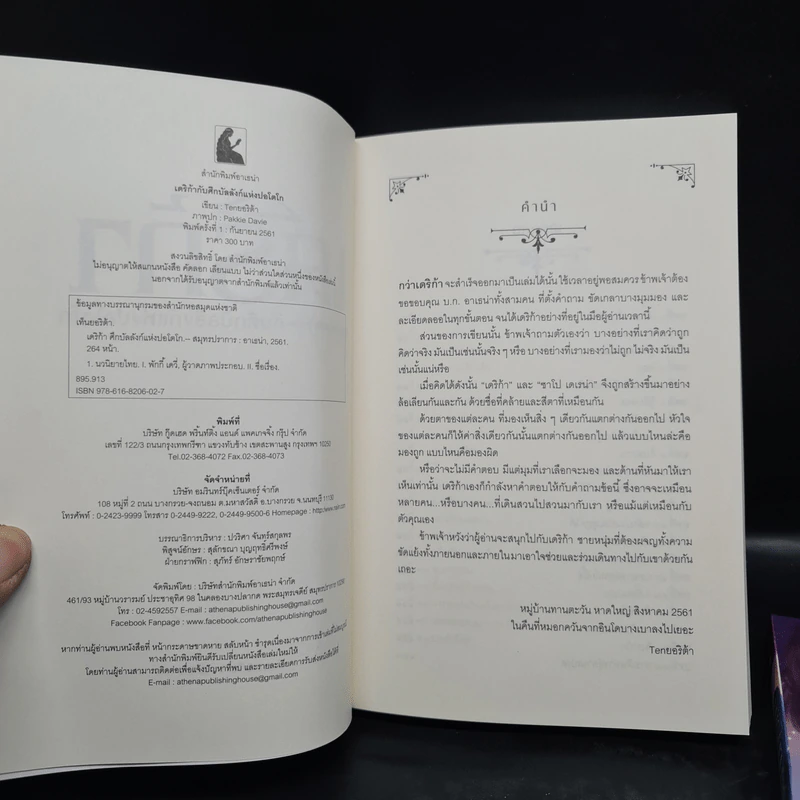 สำนักพิมพ์อาเธน่า
เดริก้ากับศึกบัลลังก์แห่งปอโดโก
เขียน : Tenยอริต้า
ภาพปก : Pakkie Davie
พิมพ์ครั้งที่ 1 : กันยายน 2561
ราคา 300 บาท
สงวนลิขสิทธิ์ โดย สำนักพิมพ์อาเธน่า
ไม่อนุญาตให้สแกนหนังสือ คัดลอก เลียนแบบ ไม่ว่าส่วนใดส่วนหนึ่งของหนังสือเล่มนี้
นอกจากได้รับอนุญาตจากสำนักพิมพ์แล้วเท่านั้น
ข้อมูลทางบรรณานุกรมของสำนักหอสมุดแห่งชาติ
เท็นยอริต้า.
เดริก้า ศึกบัลลังก์แห่งปอโดโก.-- สมุทรปราการ : อาเธน่า, 2561.
264 หน้า.
1. นวนิยายไทย. I. พักกี้ เดวี่, ผู้วาดภาพประกอบ. II. ชื่อเรื่อง.
895.913
ISBN 978-616-8206-02-7
พิมพ์ที่
บริษัท กู๊ดเฮด พริ้นท์ติ้ง แอนด์ แพคเกจจิ้ง กรุ๊ป จำกัด
เลขที่ 122/3 ถนนกรุงเทพกรีฑา แขวงทับช้าง เขตสะพานสูง กรุงเทพฯ 10250
Tel.02-368-4072 Fax.02-368-4073
จัดจำหน่ายที่
บริษัท อมรินทร์บุ๊คเซ็นเตอร์ จำกัด
108 หมู่ที่ 2 ถนน บางกรวย-จงถนอม ต.มหาสวัสดิ์ อ.บางกรวย จ.นนทบุรี 11130
โทรศัพท์ : 0-2423-9999 โทรสาร 0-2449-9222, 0-2449-9500-6 Homepage : http://www.naiin.com
บรรณาธิการบริหาร : ปวริศา จันทร์สกุลพร
พิสูจน์อักษร : สุลักขณา บุญฤทธิ์ศิริพงษ์
ฝ่ายกราฟฟิก : สุภัทร์ อักษราชัยพฤกษ์
จัดพิมพ์โดย : บริษัทสำนักพิมพ์อาเธน่า จำกัด
461/93 หมู่บ้านวรารมย์ ประชาอุทิศ 98 ในคลองบางปลากด พระสมุทรเจดีย์ สมุทรปราการ 10290
โทร : 02-4592557 E-mail : athenapublishinghouse@gmail.com
Facebook Fanpage : www.facebook.com/athenapublishinghouse
หากท่านผู้อ่านพบหนังสือที่ หน้ากระดาษขาดหาย สลับหน้า ชำรุดเนื่องมาจากการเข้าเล่มที่ไม่สมบูรณ์
ทางสำนักพิมพ์ยินดีรับเปลี่ยนหนังสือเล่มใหม่ให้
โดยท่านผู้อ่านสามารถติดต่อเพื่อแจ้งปัญหาที่พบ และรายละเอียดการรับส่งหนังสือได้ที่
E-mail : athenapublishinghouse@gmail.com
คำนำ
กว่าเดริก้า จะสำเร็จออกมาเป็นเล่มได้นั้น ใช้เวลาอยู่พอสมควร ข้าพเจ้าต้อง
ขอขอบคุณ บ.ก. อาเธน่าทั้งสามคน ที่ตั้งคำถาม ขัดเกลาบางมุมมอง และ
ละเอียดลออในทุกขั้นตอน จนได้เดริก้าอย่างที่อยู่ในมือผู้อ่านเวลานี้
ส่วนของการเขียนนั้น ข้าพเจ้าถามตัวเองว่า บางอย่างที่เราคิดว่าถูก
คิดว่าจริง มันเป็นเช่นนั้นจริง ๆ หรือ บางอย่างที่เรามองว่าไม่ถูก ไม่จริง มันเป็น
เช่นนั้นแน่หรือ
เมื่อคิดได้ดังนั้น “เดริก้า” และ “ซาโป เดเรน่า” จึงถูกสร้างขึ้นมาอย่าง
ล้อเลียนกันและกัน ด้วยชื่อที่คล้ายและสีตาที่เหมือนกัน
ด้วยตาของแต่ละคน ที่มองเห็นสิ่ง ๆ เดียวกันแตกต่างกันออกไป หัวใจ
ของแต่ละคนก็ให้ค่าสิ่งเดียวกันนั้นแตกต่างกันออกไป แล้วแบบไหนล่ะคือ
มองถูก แบบไหนคือมองผิด
หรือว่าจะไม่มีคำตอบ มีแต่มุมที่เราเลือกจะมอง และด้านที่หันมาให้เรา
เห็นเท่านั้น เดริก้าเองก็กำลังหาคำตอบให้กับคำถามข้อนี้ ซึ่งอาจจะเหมือน
หลายคน...หรือบางคน...ที่เดินสวนไปสวนมากับเรา หรือแม้แต่เหมือนกับ
ตัวคุณเอง
ข้าพเจ้าหวังว่าผู้อ่านจะสนุกไปกับเดริก้า ชายหนุ่มที่ต้องผจญทั้งความ
ขัดแย้งทั้งภายนอกและภายใน มาเอาใจช่วยและร่วมเดินทางไปกับเขาด้วยกัน
เถอะ
หมู่บ้านทานตะวัน หาดใหญ่ สิงหาคม 2561
ในคืนที่หมอกควันจากอินโดบางเบาลงไปเยอะ
Tenยอริต้า